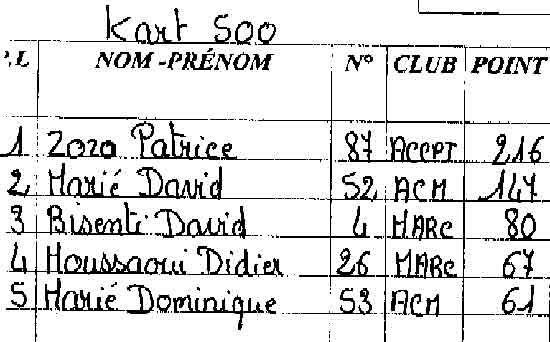 Kart 500
P.L NOM-PRÉNOM N° CLUB POINT
1 Zozo Patrice 87 ACCPT 216
2 Marié David 52 ACM 147
3 Bisenti David 4 MARC 80
4 Houssaoui Didier 26 MARC 67
5 Marié Dominique 53 ACM 61